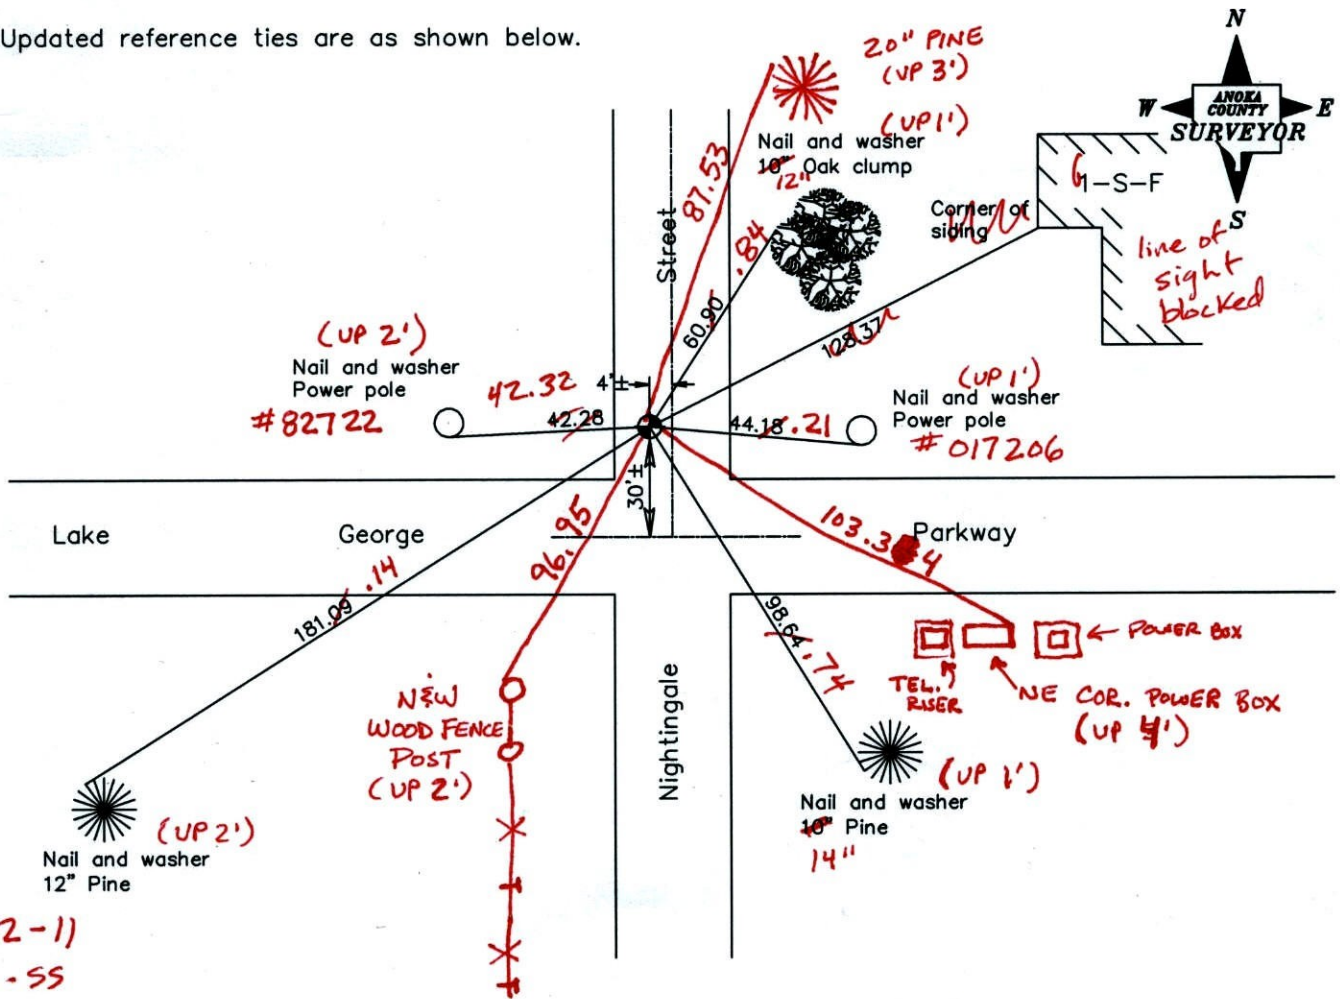 Updated reference ties are as shown below.
N
W
ANOKA
COUNTY
SURVEYOR
E
S
20" PINE
(UP 3')
(UP 1')
Nail and washer
10" Oak clump
12"
87.53
Street
.84
60.90
Corner of
siding
G
1-S-F
line of
sight
blocked
128.37
(UP 2')
Nail and washer
Power pole
#82722
42.32
42.28
4'±
44.18
.21
(UP 1')
Nail and washer
Power pole
#017206
30'±
Lake George Parkway
103.34
96.95
181.09
.14
98.64
.74
POWER BOX
TEL.
RISER
NE COR. POWER BOX
(UP 4')
N&W
WOOD FENCE
POST
(UP 2')
Nightingale
(UP 1')
Nail and washer
10" Pine
14"
(UP 2')
Nail and washer
12" Pine
2-11
-SS